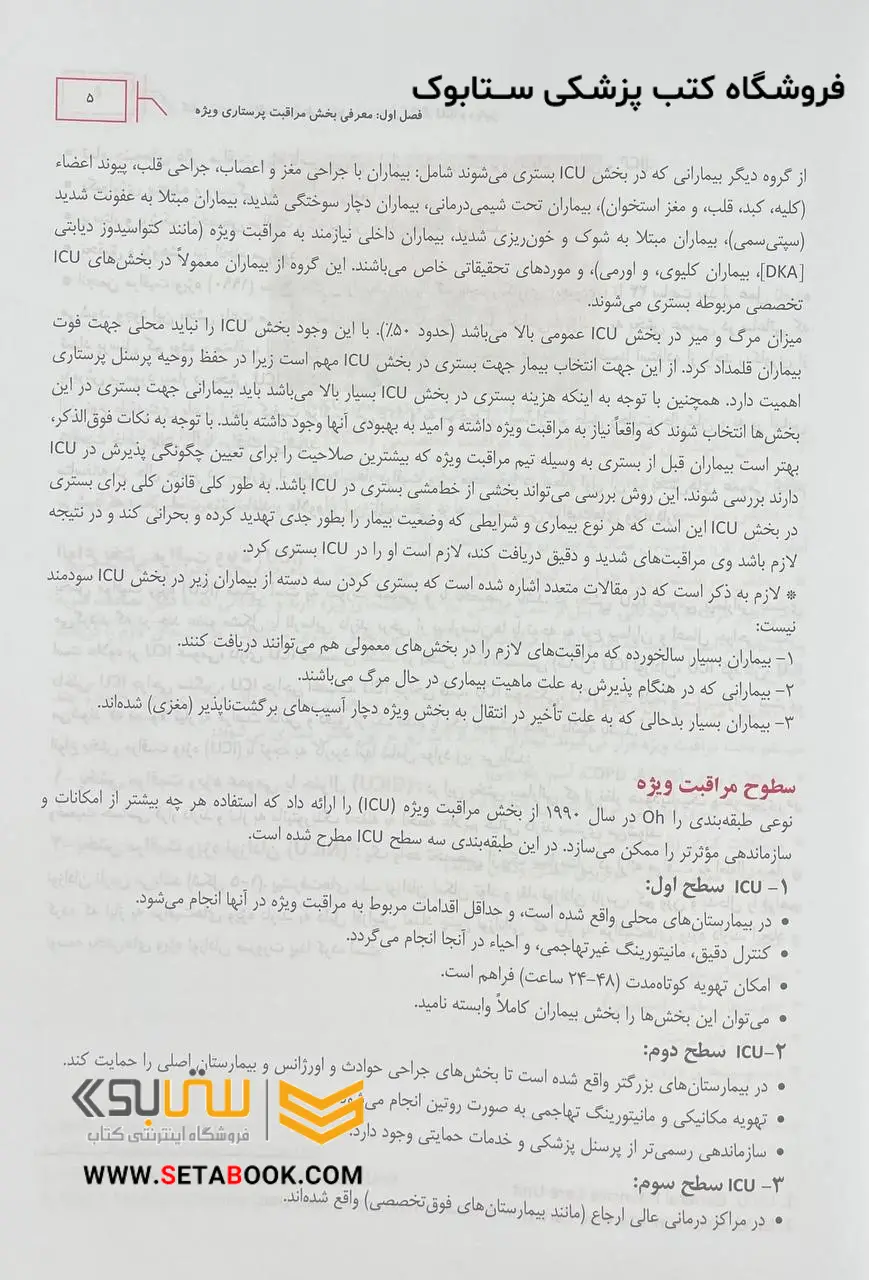 فروشگاه کتب پزشکی ستابوک
فصل اول: معرفی بخش مراقبت پرستاری ویژه
۵
از گروه دیگر بیمارانی که در بخش ICU بستری می‌شوند شامل: بیماران با جراحی مغز و اعصاب، جراحی قلب، پیوند اعضاء
(کلیه، کبد، قلب، و مغز استخوان)، بیماران تحت شیمی‌درمانی، بیماران دچار سوختگی شدید، بیماران مبتلا به عفونت شدید
(سپتی‌سمی)، بیماران مبتلا به شوک و خون‌ریزی شدید، بیماران داخلی نیازمند به مراقبت ویژه (مانند کتواسیدوز دیابتی
[DKA]، بیماران کلیوی، و اورمی)، و موردهای تحقیقاتی خاص می‌باشند. این گروه از بیماران معمولاً در بخش‌های ICU
تخصصی مربوطه بستری می‌شوند.
میزان مرگ و میر در بخش ICU عمومی بالا می‌باشد (حدود ۵۰٪). با این وجود بخش ICU را نباید محلی جهت فوت
بیماران قلمداد کرد. از این جهت انتخاب بیمار جهت بستری در بخش ICU مهم است زیرا در حفظ روحیه پرسنل پرستاری
اهمیت دارد. همچنین با توجه به اینکه هزینه بستری در بخش ICU بسیار بالا می‌باشد باید بیمارانی جهت بستری در این
بخش‌ها انتخاب شوند که واقعاً نیاز به مراقبت ویژه داشته و امید به بهبودی آنها وجود داشته باشد. با توجه به نکات فوق‌الذکر،
بهتر است بیماران قبل از بستری به وسیله تیم مراقبت ویژه که بیشترین صلاحیت را برای تعیین چگونگی پذیرش در ICU
دارند بررسی شوند. این روش بررسی می‌تواند بخشی از خط‌مشی بستری در ICU باشد. به طور کلی قانون کلی برای بستری
در بخش ICU این است که هر نوع بیماری و شرایطی که وضعیت بیمار را بطور جدی تهدید کرده و بحرانی کند و در نتیجه
لازم باشد وی مراقبت‌های شدید و دقیق دریافت کند، لازم است او را در ICU بستری کرد.
* لازم به ذکر است که در مقالات متعدد اشاره شده است که بستری کردن سه دسته از بیماران زیر در بخش ICU سودمند
نیست:
۱- بیماران بسیار سالخورده که مراقبت‌های لازم را در بخش‌های معمولی هم می‌توانند دریافت کنند.
۲- بیمارانی که در هنگام پذیرش به علت ماهیت بیماری در حال مرگ می‌باشند.
۳- بیماران بسیار بدحالی که به علت تأخیر در انتقال به بخش ویژه دچار آسیب‌های برگشت‌ناپذیر (مغزی) شده‌اند.
سطوح مراقبت ویژه
نوعی طبقه‌بندی را Oh در سال ۱۹۹۰ از بخش مراقبت ویژه (ICU) را ارائه داد که استفاده هر چه بیشتر از امکانات و
سازماندهی مؤثرتر را ممکن می‌سازد. در این طبقه‌بندی سه سطح ICU مطرح شده است.
۱- ICU سطح اول:
• در بیمارستان‌های محلی واقع شده است، و حداقل اقدامات مربوط به مراقبت ویژه در آنها انجام می‌شود.
• کنترل دقیق، مانیتورینگ غیرتهاجمی، و احیاء در آنجا انجام می‌گردد.
• امکان تهویه کوتاه‌مدت (۴۸-۲۴ ساعت) فراهم است.
• می‌توان این بخش‌ها را بخش بیماران کاملاً وابسته نامید.
۲-ICU سطح دوم:
• در بیمارستان‌های بزرگتر واقع شده است تا بخش‌های جراحی حوادث و اورژانس و بیمارستان اصلی را حمایت کند.
• تهویه مکانیکی و مانیتورینگ تهاجمی به صورت روتین انجام می‌شود.
• سازماندهی رسمی‌تر از پرسنل پزشکی و خدمات حمایتی وجود دارد.
۳- ICU سطح سوم:
• در مراکز درمانی عالی ارجاع (مانند بیمارستان‌های فوق‌تخصصی) واقع شده‌اند.
ستابوک
فروشگاه اینترنتی کتاب
WWW.SETABOOK.COM